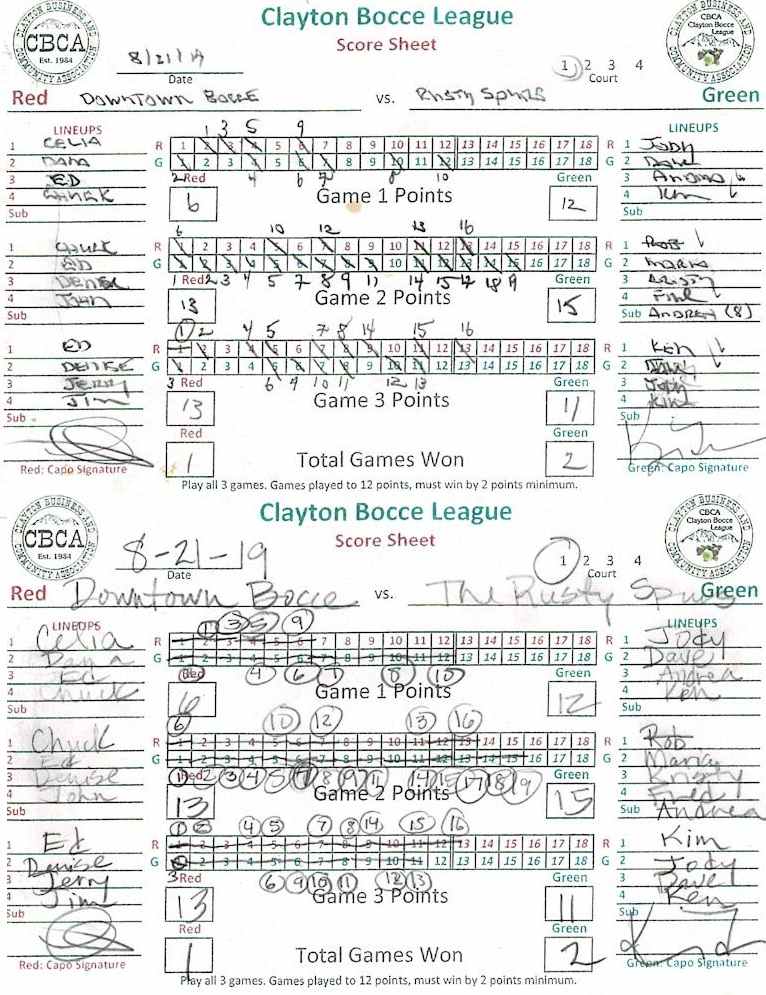 Clayton Bocce League
Score Sheet
CLAYTON BUSINESS AND COMMUNITY ASSOCIATION
CBCA
Est. 1984
CBCA
Clayton Bocce
League
8/21/19
Date
1 2 3 4
Court
Red DOWNTOWN BOCCE vs. RUSTY SPURS Green
LINEUPS LINEUPS
1 3 5 9
1 CELIA R 1 2 3 4 5 6 7 8 9 10 11 12 13 14 15 16 17 18 R 1 JODY
2 DANA G 1 2 3 4 5 6 7 8 9 10 11 12 13 14 15 16 17 18 G 2 DAVE
3 ED 2 Red 4 6 7 8 10 Green 3 ANDREA
4 CHUCK 6 Game 1 Points 12 4 KEN
Sub Sub
6 10 12 13 16
1 CHUCK R 1 2 3 4 5 6 7 8 9 10 11 12 13 14 15 16 17 18 R 1 ROB
2 ED G 1 2 3 4 5 6 7 8 9 10 11 12 13 14 15 16 17 18 G 2
3 DENISE 1 Red 2 3 4 5 7 8 9 11 14 15 17 18 19 Green 3
4 JOHN 13 Game 2 Points 15 4
Sub Sub ANDREA (8)
1 2 4 5 7 8 14 15 16
1 ED R 1 2 3 4 5 6 7 8 9 10 11 12 13 14 15 16 17 18 R 1
2 DENISE G 1 2 3 4 5 6 7 8 9 10 11 12 13 14 15 16 17 18 G 2
3 JERRY 3 Red 6 9 10 11 12 13 Green 3
4 JIM 13 Game 3 Points 11 4
Sub Sub
Red Green
1 Total Games Won 2
Red: Capo Signature Green: Capo Signature
Play all 3 games. Games played to 12 points, must win by 2 points minimum.
Clayton Bocce League
Score Sheet
CLAYTON BUSINESS AND COMMUNITY ASSOCIATION
CBCA
Est. 1984
CBCA
Clayton Bocce
League
8-21-19
Date
1 2 3 4
Court
Red Downtown Bocce vs. The Rusty Spurs Green
LINEUPS LINEUPS
1 3 5 9
1 Celia R 1 2 3 4 5 6 7 8 9 10 11 12 13 14 15 16 17 18 R 1 Jody
2 Dana G 1 2 3 4 5 6 7 8 9 10 11 12 13 14 15 16 17 18 G 2 Dave
3 Ed Red 4 6 7 8 10 Green 3 Andrea
4 Chuck 6 Game 1 Points 12 4 Ken
Sub Sub
6 10 12 13 16
1 Chuck R 1 2 3 4 5 6 7 8 9 10 11 12 13 14 15 16 17 18 R 1 Rob
2 Ed G 1 2 3 4 5 6 7 8 9 10 11 12 13 14 15 16 17 18 G 2
3 Denise 1 Red 2 3 4 5 7 8 9 11 14 15 17 18 19 Green 3 Kristy
4 John 13 Game 2 Points 15 4 Fred
Sub Sub Andrea
1 2 4 5 7 8 14 15 16
1 Ed R 1 2 3 4 5 6 7 8 9 10 11 12 13 14 15 16 17 18 R 1 Kim
2 Denise G 1 2 3 4 5 6 7 8 9 10 11 12 13 14 15 16 17 18 G 2 Jody
3 Jerry 3 Red 6 9 10 11 12 13 Green 3 Dave
4 Jim 13 Game 3 Points 11 4 Ken
Sub Sub
Red Green
1 Total Games Won 2
Red: Capo Signature Green: Capo Signature
Play all 3 games. Games played to 12 points, must win by 2 points minimum.